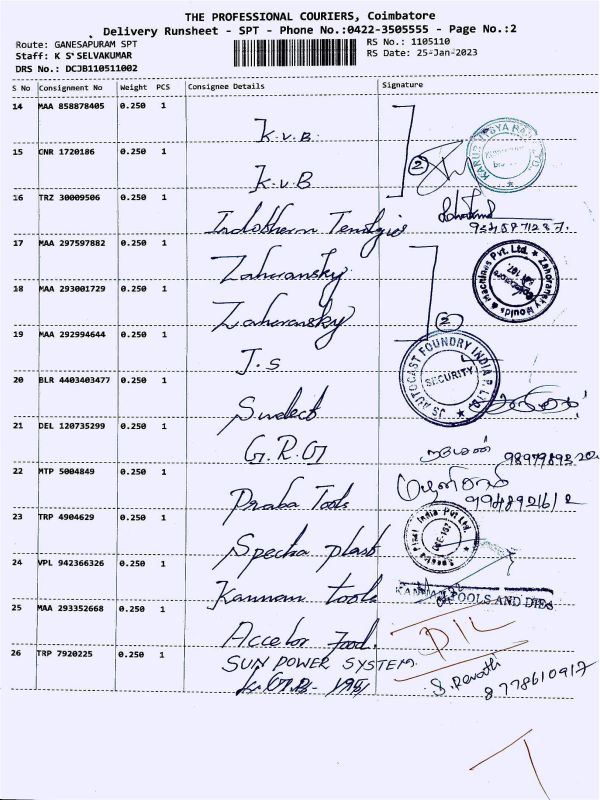 THE PROFESSIONAL COURIERS, Coimbatore
Delivery Runsheet - SPT - Phone No.:0422-3505555 - Page No.:2
Route: GANESAPURAM SPT
RS No.: 1105110
Staff: K S SELVAKUMAR
RS Date: 25-Jan-2023
DRS No.: DCJB110511002
S No Consignment No Weight PCS Consignee Details Signature
14 MAA 858878405 0.250 1
K.V.B.
15 CNR 1720186 0.250 1
K.V.B
2
16 TRZ 30009506 0.250 1
Indotherm
17 MAA 297597882 0.250 1
Zahoransky
Zahoransky Moulds & Machines Pvt. Ltd.
18 MAA 293001729 0.250 1
Zahoransky
2
19 MAA 292994644 0.250 1
J.S
JS AUTOCAST FOUNDRY INDIA P. LTD.
SECURITY
20 BLR 4403403477 0.250 1
21 DEL 120735299 0.250 1
G.R.G
ரமேஷ்
22 MTP 5004849 0.250 1
Praba Tools
23 TRP 4904629 0.250 1
Specha plast
24 VPL 942366326 0.250 1
Kannan tools
KANNAN TOOLS AND DIES
25 MAA 293352668 0.250 1
Accelor Food.
DIL
26 TRP 7920225 0.250 1
SUN POWER SYSTEM.
S. Revathi
8778610917